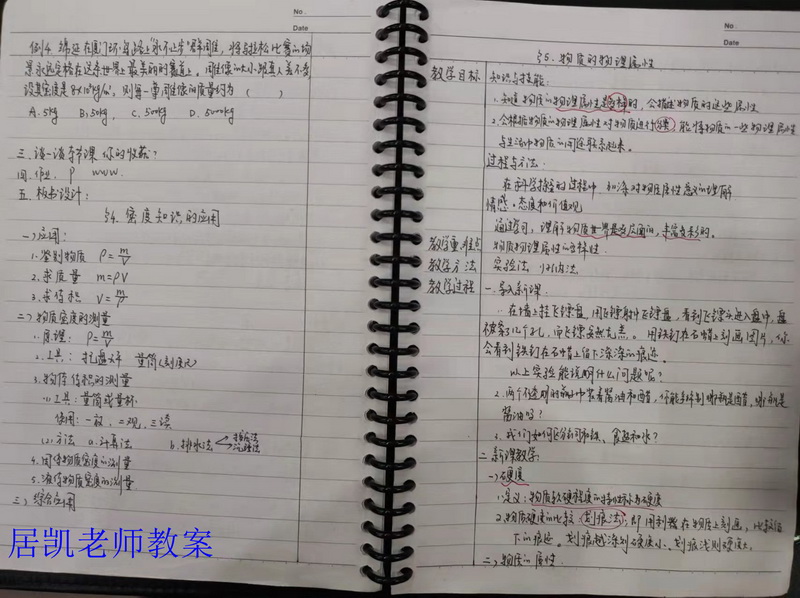 No.
Date
例4. 绵延在厦门环岛路上"永不止步"群雕,将马拉松比赛的场
景永远定格在这条世界上最美丽的赛道上。雕像的大小跟真人差不多,
设其密度是8×10³kg/m³,则每一尊雕像的质量约为( )
A. 5kg B. 50kg, C. 500kg D. 5000kg
三. 谈一谈本节课你的收获?
四. 作业: P
五. 板书设计:
§4. 密度知识的应用
一、应用:
1. 鉴别物质 ρ=m/V
2. 求质量 m=ρV
3. 求体积 V=m/ρ
二、物质密度的测量
1. 原理: ρ=m/V
2. 工具: 托盘天平 量筒(刻度尺)
3. 物体体积的测量
(1)工具: 量筒或量杯
使用: 一放, 二观, 三读
(2)方法 a. 计算法 b. 排水法
4. 固体物质密度的测量
5. 液体物质密度的测量
三、综合应用
居凯老师教案
No.
Date
§5. 物质的物理属性
教学目标 知识与技能:
1. 知道物质的物理属性是多样的, 会描述物质的这些属性
2. 会根据物质的物理属性对物质进行分类, 能将物质的一些物理属性
与生活中物质的用途联系起来。
过程与方法:
在科学探究的过程中 加深对物理属性意义的理解
情感·态度和价值观
通过学习, 理解物质世界是
教学重、难点 物质物理属性的多样性
教学方法 实验法 归纳法
教学过程 一. 导入新课:
1. 在墙上挂飞镖盘, 用飞镖射中飞镖盘, 看到飞镖头进入盘中, 盘
被穿了几个孔, 而飞镖安然无恙。用铁钉在石蜡上刻画图片, 你
会看到铁钉在石蜡上留下深深的痕迹。
以上实验能说明什么问题呢?
2. 两个不透明的瓶中装着酱油和白醋, 你能否辨别哪瓶是白醋, 哪瓶是
酱油吗?
3. 我们如何区分铜和铁、食盐和水?
二. 新课教学
一、硬度
1. 定义: 物质软硬程度的特性叫为硬度
2. 物质硬度的比较(划痕法): 即用利器在物质上刻画, 比较留
下的痕迹。划痕越深则硬度小、划痕浅则硬度大。
二、物质的属性